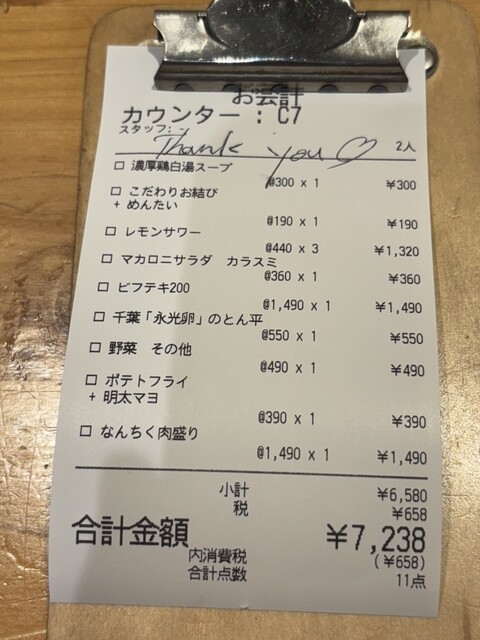 お会計
カウンター : C7
スタッフ: -
Thank you ♡ 2人
□ 濃厚鶏白湯スープ
@300 x 1 ¥300
□ こだわりお結び
+ めんたい
@190 x 1 ¥190
□ レモンサワー
@440 x 3 ¥1,320
□ マカロニサラダ カラスミ
@360 x 1 ¥360
□ ビフテキ200
@1,490 x 1 ¥1,490
□ 千葉「永光卵」のとん平
@550 x 1 ¥550
□ 野菜 その他
@490 x 1 ¥490
□ ポテトフライ
+ 明太マヨ
@390 x 1 ¥390
□ なんちく肉盛り
@1,490 x 1 ¥1,490
小計 ¥6,580
税 ¥658
合計金額 ¥7,238
内消費税 (¥658)
合計点数 11点